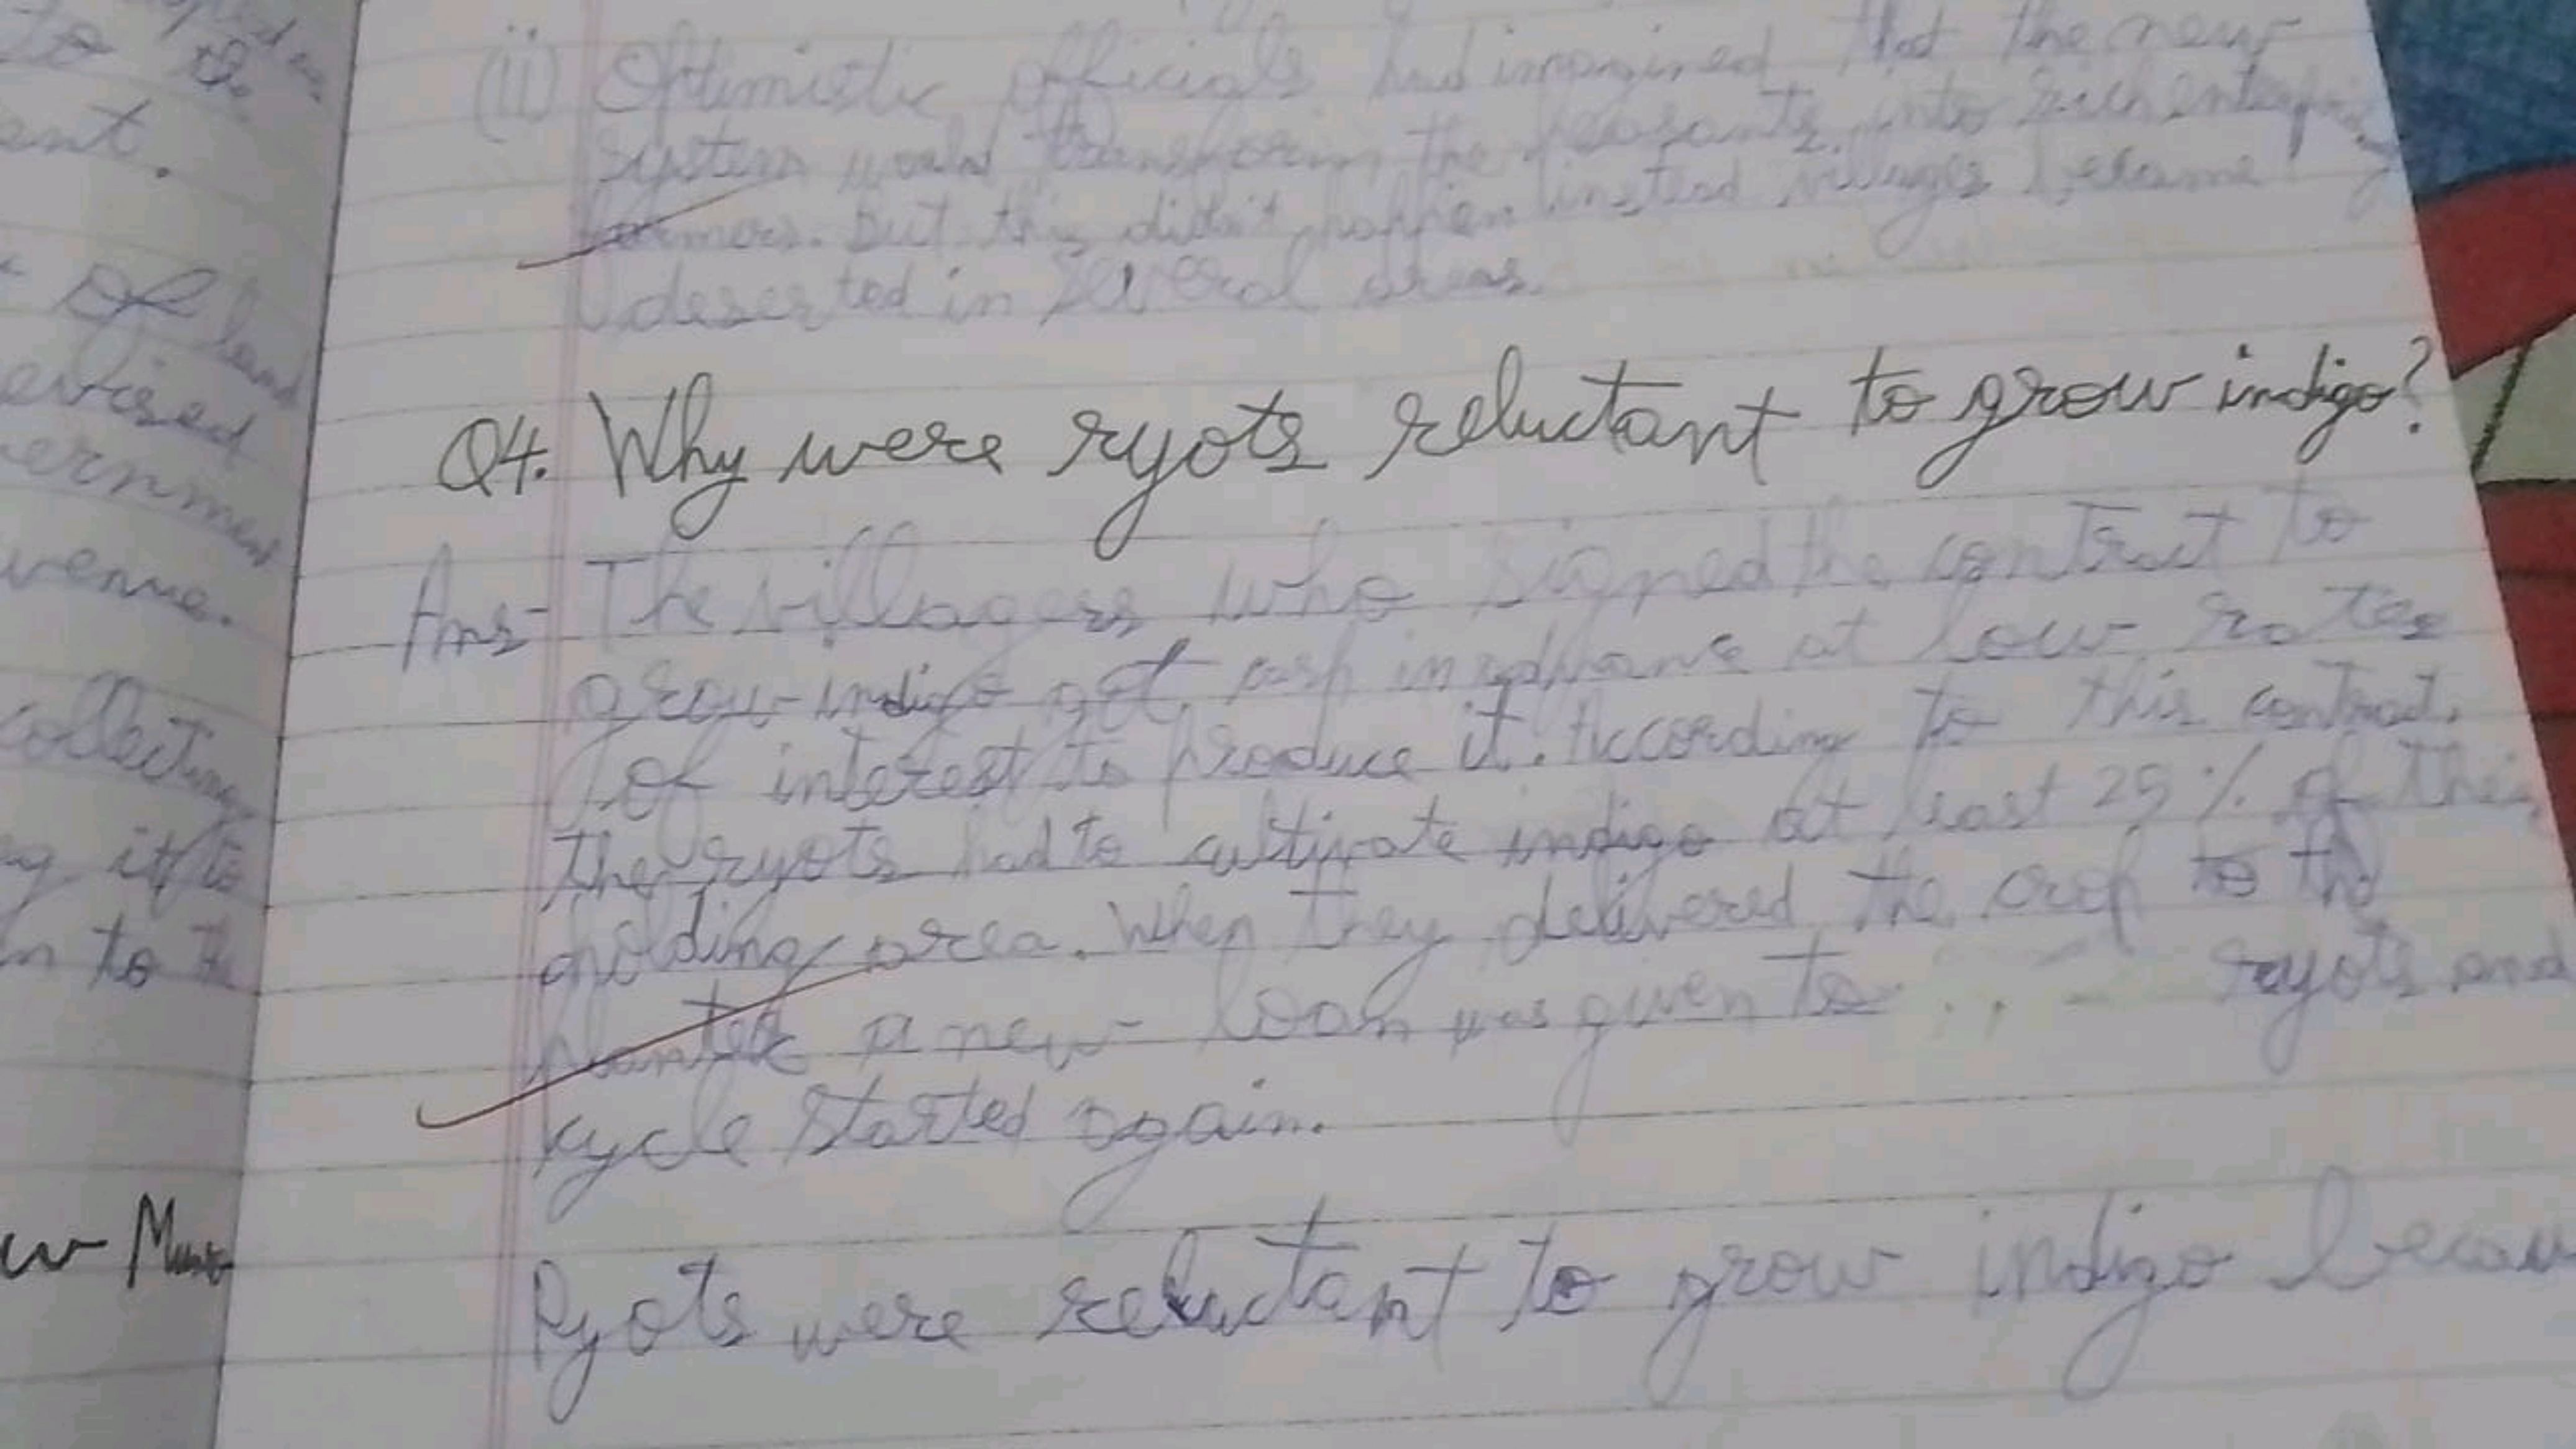 to the
ent.
of land
evised
ernment
venue.
collecting
g it to
n to the
w Mun
(ii) Optimistic officials had imagined that the new
system would transform the peasants into rich enterprising
farmers. But this didn't happen instead villages became
deserted in several areas.
Q4. Why were ryots reluctant to grow indigo?
Ans- The villagers who signed the contract to
grow indigo got cash in advance at low rates
of interest to produce it. According to this contract.
the ryots had to cultivate indigo at least 25% of their
holding area. When they delivered the crop to the
planter a new loan was given to ryots and
kycle started again.
Ryots were reluctant to grow indigo becau